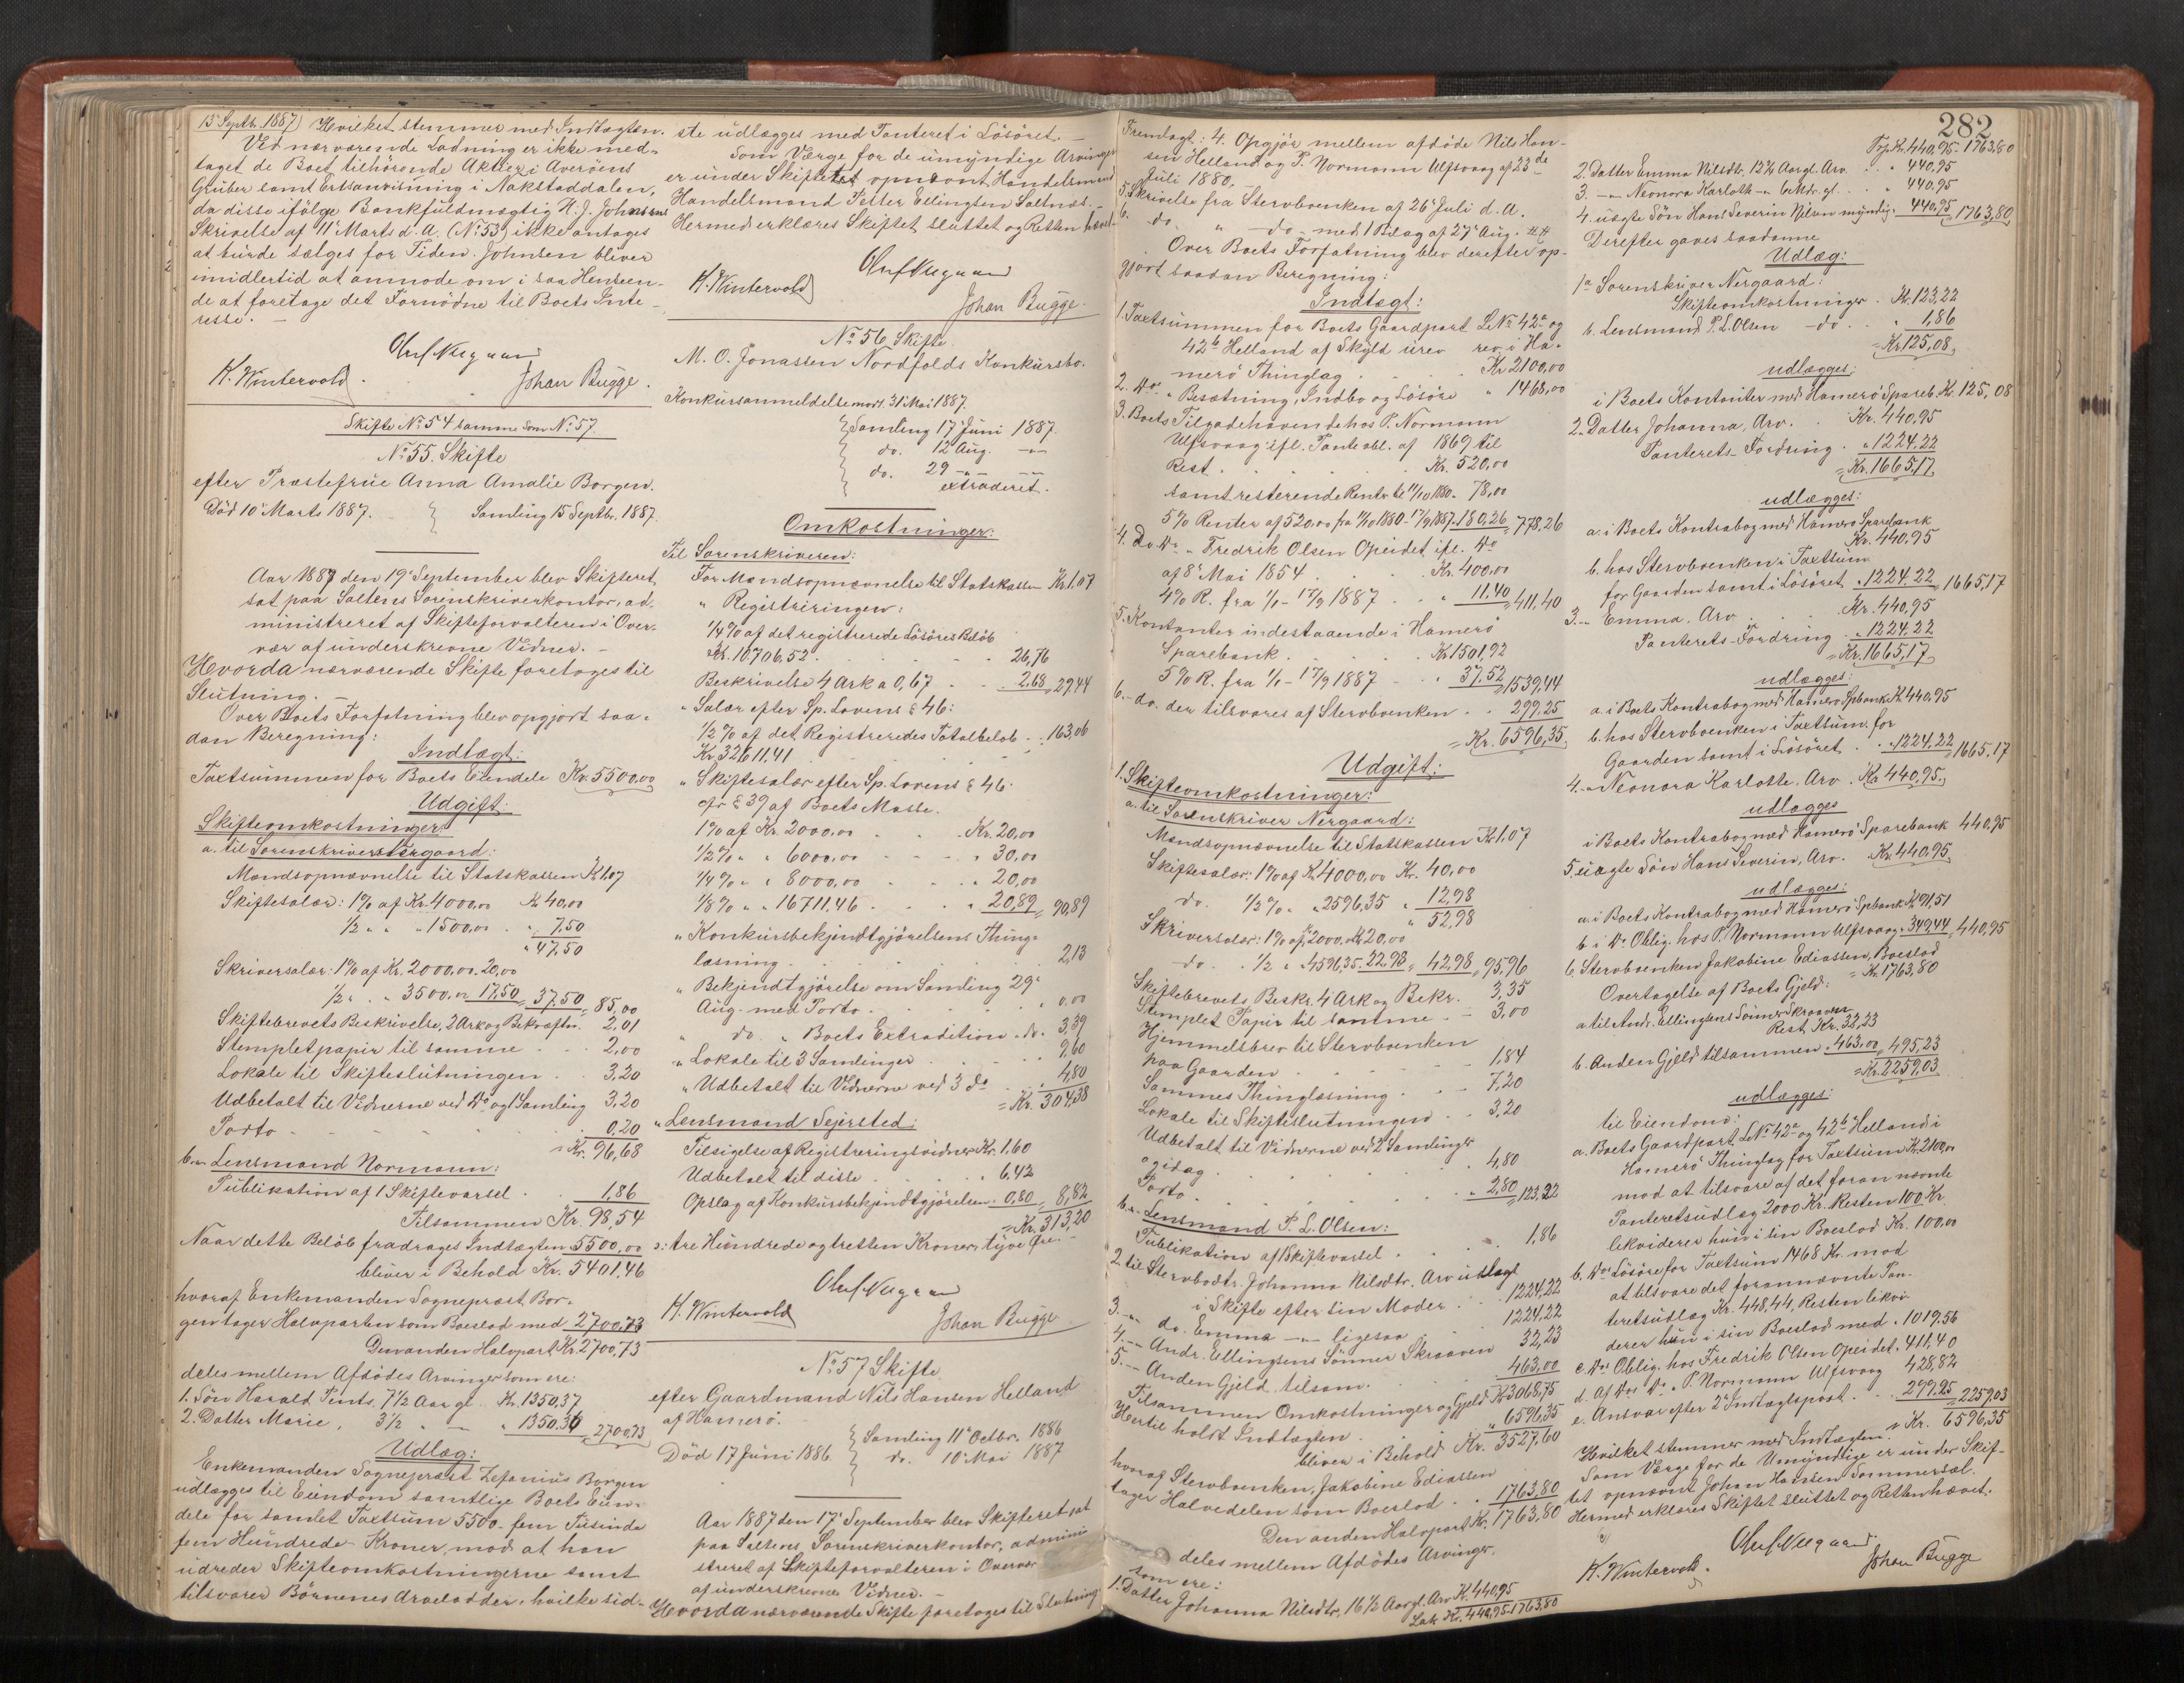 15 Septb. 1887) Hvilket stemmer med Indtægten.
Ved nærværende Lodning er ikke med-
taget de Boet tilhörende Aktier i Averöens
Gruber samt Ertsanvisning i Nakstaddalen,
da disse ifölge Bankfuldmægtig H. J. Johnsens
Skrivelse af 11' Marts d. A. (No 53) ikke antages
at burde sælges for Tiden. Johnsen bliver
imidlertid at anmode om i saa Henseen-
de at foretage det Fornödne til Boets Inte-
resse. —
Oluf Nergaard
K. Wintervold.
Johan Bugge.
Skifte No 54 samme som No 57.
No 55. Skifte
efter Præstefrue Anna Amalie Borgen.
Död 10' Marts 1887. Samling 15 Septbr. 1887.
Aar 1887 den 19' September blev Skifteret
sat paa Saltens Sorenskriverkontor, ad-
ministreret af Skifteforvalteren i Over-
vær af underskrevne Vidner. —
Hvorda nærværende Skifte foretoges til
Slutning. —
Over Boets Forfatning blev opgjort saa-
dan Beregning:
Indtægt:
Taxtsummen for Boets Eiendele Kr. 5500,00
Udgift:
Skifteomkostninger:
a. til Sorenskriver Nergaard:
Mandsopnævnelse til Statskassen K 1.07
Skiftesalær: 1% af Kr. 4000,00 Kr 40,00
1/2 " " " 1500,00 . " 7,50
" 47,50
Skriversalær: 1% af Kr. 2000,00. 20,00
1/2 " . " 3500,00 17,50 = 37,50 = 85,00
Skiftebrevets Beskrivelse, 2 Ark og Bekræftn. 2,01
Stempletpapir til samme . . 2,00
Lokale til Skifteslutningen . . 3,20
Udbetalt til Vidnerne ved Do og 1 Samling 3,20
Porto . . . . 0,20
= Kr. 96,68
b. " Lensmand Normann:
Publikation af 1 Skiftevarsel . . 1,86
Tilsammen Kr. 98,54
Naar dette Belöb fradrages Indtægten 5500,00
bliver i Behold Kr. 5401,46
hvoraf Enkemanden Sogneprest Bor-
gen tager Halvparten som Boeslod med 2700,73
Den anden Halvpart Kr. 2700,73
deles mellem Afdödes Arvinger som ere:
1. Sön Harald Tents. 7 1/2 Aar gl. Kr. 1350,37
2. Datter Marie, 3 1/2 " — " 1350.36 = 2700,73
Udlæg:
Enkemanden Sogneprest Zefanius Borgen
udlægges til Eiendom samtlige Boets Eien-
dele for samlet Taxtsum 5500 - fem Tusinde
fem Hundrede - Kroner, mod at han
udreder Skifteomkostningerne samt
tilsvarer Börnenes Arvelodder, hvilke sid-
ste udlægges med Panteret i Lösöret. —
Som Værge for de umyndige Arvinger
er under Skiftetet opnævnt Handelsmand
Handelsmand Petter Ellingsen Saltnes. —
Hermed erklæres Skiftet sluttet og Retten hævet.
Oluf Nergaard
K. Wintervold
Johan Bugge.
No 56 Skifte
M. O. Jonassen Nordfolds Konkursbo.
Konkursanmeldelse modt. 31' Mai 1887.
Samling 17' Juni 1887.
do. 12' Aug. — " —
do. 29 — " — — " —
extraderet.
Omkostninger:
Til Sorenskriveren:
For Mandsopnævnelse til Statskassen Kr 1.07
" Registreringen:
1/4 % af det registrerede Lösöres Belöb
Kr. 10706.52 . . . 26,76
Beskrivelse 4 Ark a 0,67 . . 2.68 = 29,44
" Salær efter Sp. Lovens § 46:
1/2 % af det Registreredes Totalbelöb . . 163,06
Kr. 32611,41
" Skiftesalær efter Sp. Lovens § 46.
cfr. § 39 af Boets Masse.
1% af Kr. 2000,00 . . Kr. 20,00
1/2 % " " 6000,00 . . " 30,00
1/4 % " " 8000,00 . . " 20,00
1/8 % " " 16711,46 . . " 20,89 = 90,89
" Konkursbekjendtgjörelsens Thing-
læsning . . . . 2,13
" Bekjendtgjörelse om Samling 29'
Aug. med Porto . . . " 0,00
" do. " Boets Extradition . do. 3,39
" Lokale til 3 Samlinger . . 9,60
" Udbetalt til Vidnerne ved 3 do . . 4,80
= Kr. 304,38
" Lensmand Sejersted:
Tilsigelse af Registreringsvidner Kr. 1.60
Udbetalt til disse . . " 6.42
Opslag af Konkursbekjendtgjörelsen " 0,80 = 8,82
= Kr. 313,20
: tre Hundrede og tretten Kroner, tyve Öre. —
Oluf Nergaard
K. Wintervold
Johan Bugge
No 57 Skifte
efter Gaardmand Nils Hansen Helland
af Hamerö.
Död 17 Juni 1886 Samling 11' Octbr. 1886
do. 10' Mai 1887
Aar 1887 den 17' September blev Skifteret sat
paa Saltens Sorenskriverkontor, admini-
streret af Skifteforvalteren i Overvær
af underskrevne Vidner. —
Hvorda nærværende Skifte foretoges til Slutning.
282
Fremlagt: 4. Opgjör mellem afdöde Nils Han-
sen Helland og P. Normann Ulfsvaag af 23de
Juli 1880.
5. Skrivelse fra Stervboenken af 26' Juli d. A.
6. do. " — do — med 1 Bilag af 27' Aug. " "
Over Boets Forfatning blev derefter op-
gjort saadan Beregning:
Indtægt:
1. Taxtsummen for Boets Gaardpart LNo 42a og
42b Helland af Skyld urev. rev. i Ha-
merö Thinglag . . . Kr 2100,00
2. Do " Besætning, Indbo og Lösöre " 1468,00
3. Boets Tilgodehavende hos P. Normann
Ulfsvaag ifl. Panteobl. af 1869 til
Rest . . . . Kr. 520,00
samt resterende Renter til 11/10 1880 - 78,00
5% Renter af 520,00 fra 11/10 1880 - 17/9 1887. 180,26 = 778,26
4. Do Do " Fredrik Olsen Opeidet ifl. Do
af 8' Mai 1854 . . . Kr. 400,00
4% R. fra 1/1 - 17/9 1887 . . " 11.40 = 411,40
5. Kontanter indestaaende i Hamerö
Sparebank . . . Kr 1501,92
5% R. fra 1/1 - 17/9 1887 . . " 37,52 = 1539,44
6. - do. der tilsvares af Stervboenken . . 299,25
= Kr. 6596,35
Udgift:
1. Skifteomkostninger:
a. til Sorenskriver Nergaard:
Mandsopnævnelse til Statskassen Kr 1.07
Skiftesalær: 1% af Kr 4000,00 Kr. 40,00
do. 1/2 % " " 2596,35 " 12,98
" 52,98
Skriversalær: 1% af Kr 2000,00 Kr 20,00
do. . 1/2 " " 4596,35. 22,98 = 42,98 = 95,96
Skiftebrevets Beskr. 4 Ark og Bekr. 3,35
Stemplet Papir til samme . — 3,00
Hjemmelsbrev til Stervboenken
paa Gaarden . . . . 1,84
Sammes Thinglæsning . . . 7,20
Lokale til Skifteslutningen . . 3,20
Udbetalt til Vidnerne ved 2 Samlinger
og idag . . . . 4,80
Porto . . . . " 2,80 = 123,22
b. " Lensmand P. L. Olsen:
Publikation af 1 Skiftevarsel . . . 1,86
2. til Stervbodtr. Johanna Nilsdtr. Arv udlagt
i Skifte efter sin Moder . . 1224,22
3. — " do. Emma — " — ligesaa . . 1224,22
4. — " Andr. Ellingsens Sönner Skraaven 32,23
5. — " Anden Gjeld, tilsam. . . 463,00
Tilsammen Omkostninger og Gjeld Kr 3068,75
Hertil holdt Indtægten . . " 6596,35
bliver i Behold Kr. 3527,60
hvoraf Stervboenken, Jakobine Ediassen
tager Halvedelen som Boeslod . . 1763,80
Den anden Halvpart Kr. 1763,80
deles mellem Afdödes Arvinger,
som ere:
1. Datter Johanna Nilsdtr. 16 1/2 Aar gl. Arv K 440,95
Lat. Kr. 440,95 1763,80
Trp. Kr. 440,95 - 1763,80
2. Datter Emma Nilsdtr. 12 1/2 Aar gl. Arv. . " 440,95
3. — " — Neonora Karlotte — " — 6 Mdr. gl. . . " 440,95
4. uægte Sön Hans Severin Nilsen myndig " 440,95 = 1763,80
Derefter gaves saadanne
Udlæg:
1a Sorenskriver Nergaard:
Skifteomkostninger . Kr. 123,22
b. Lensmand P. L. Olsen — do . . " 1,86
= Kr. 125,08
udlægges:
i Boets Kontanter med Hamerö Spareb. Kr. 125,08
2. Datter Johanna, Arv. . Kr. 440,95
Panterets-Fordring . " 1224,22
= Kr. 1665,17
udlægges:
a. i Boets Kontrabog med Hamerö Sparebank
Kr. 440,95
b. hos Stervboenken i Taxtsum
for Gaarden samt i Lösöret. " 1224,22 = 1665,17
3. — " Emma, Arv . . Kr. 440,95
Panterets-Fordring . " 1224,22
= Kr. 1665,17
udlægges:
a. i Boets Kontrabog med Hamerö Spbank Kr 440,95
b. hos Stervboenken i Taxtsum for
Gaarden samt i Lösöret . . " 1224,22 = 1665,17
4. — " Neonora Karlotte, Arv . Kr. 440,95
udlægges
i Boets Kontrabog med Hamerö Sparebank 440,95
5. uægte Sön Hans Severin, Arv. Kr. 440,95
udlægges:
a. i Boets Kontrabog med Hamerö Spbank Kr 91,51
b. i Do Oblig. hos P. Normann Ulfsvaag " 349,44 = 440,95
6. Stervboenken Jakobine Ediassen, Boeslod
= Kr. 1763,80
Overtagelse af Boets Gjeld:
a. til Andr. Ellingsens Sönner Skraaven
Rest Kr. 32,23
b. Anden Gjeld tilsammen " 463,00 = 495,23
= Kr. 2259,03
udlægges:
til Eiendom:
a. Boets Gaardpart LNo 42a og 42b Helland i
Hamerö Thinglag for Taxtsum Kr. 2100,00
mod at tilsvare af det foran nævnte
Panteretsudlæg 2000 Kr. Resten 100 Kr.
likviderer hun i sin Boeslod Kr. 100,00
b. Do Lösöre for Taxtsum 1468 Kr. mod
at tilsvare det forannævnte Pan-
teretsudlæg Kr. 448,44, Resten likvi-
derer hun i sin Boeslod med " 1019,56
c. Do Oblig. hos Fredrik Olsen Opeidet " 411,40
d. Af Do Do " P. Normann Ulfsvaag 428,82
e. Ansvar efter 2' Indtægtspost . . 299,25 = 2259,03
= Kr. 6596,35
Hvilket stemmer med Indtægten.
Som Værge for de Umyndige er under Skif-
tet opnævnt Johan Hansen Sommersæl.
Hermed erklæres Skiftet sluttet og Retten hævet.
Oluf Nergaard
K. Wintervold.
Johan Bugge